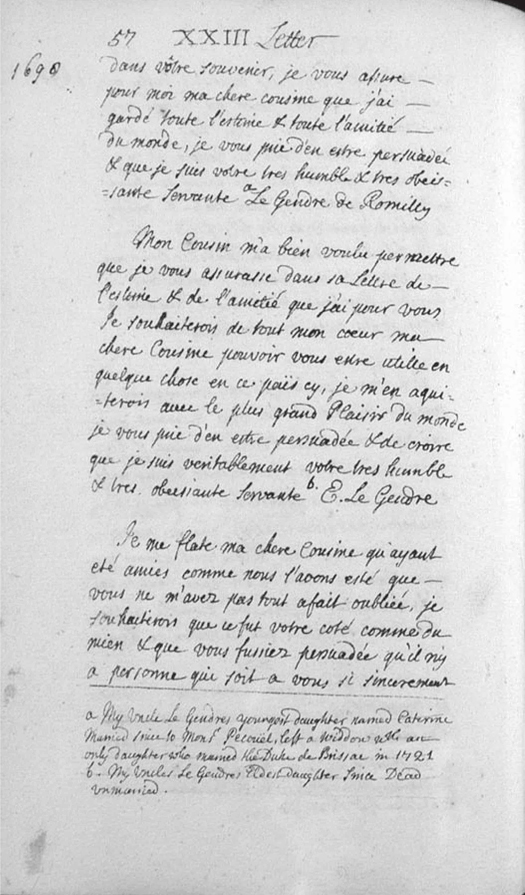 57 XXIII Letter
1698
dans vôtre souvenir, je vous assure –
pour moi ma chere cousine que j'ai –
gardé toute l'estoime & toute l'amitié –
du monde, je vous prie d'en estre persuadée
& que je suis votre tres humble & tres obeis=
=sante servante a Le Gendre de Romilly
Mon Cousin m'a bien voulu permettre
que je vous assurasse dans sa Lettre de –
l'estoime & de l'amitié que j'ai pour vous
Je souhaiterois de tout mon cœur ma
chere Cousine pouvoir vous estre utille en
quelque chose en ce païs cy, je m'en aqui=
=terois avec le plus grand Plaisir du monde
je vous prie d'en estre persuadée & de croire
que je suis veritablement votre tres humble
& tres obeisiante servante b. E. Le Gendre
Je me flate ma chere Cousine qu'ayant
eté amies comme nous l'avons esté que –
vous ne m'avez pas tout a fait oubliée, je
souhaiterois que ce fut votre coté comme du
mien & que vous fussiez persuadée qu'il n'y
a personne qui soit a vous si sincerement
a My Uncle Le Gendres youngest daughter named Caterine
Married since to Monsr Pecouel, left a Widdow wth an
only daughter who married the Duke de Brissac in 1721
b. My Uncles Le Gendres Eldest daughter Since Dead
unmarried.